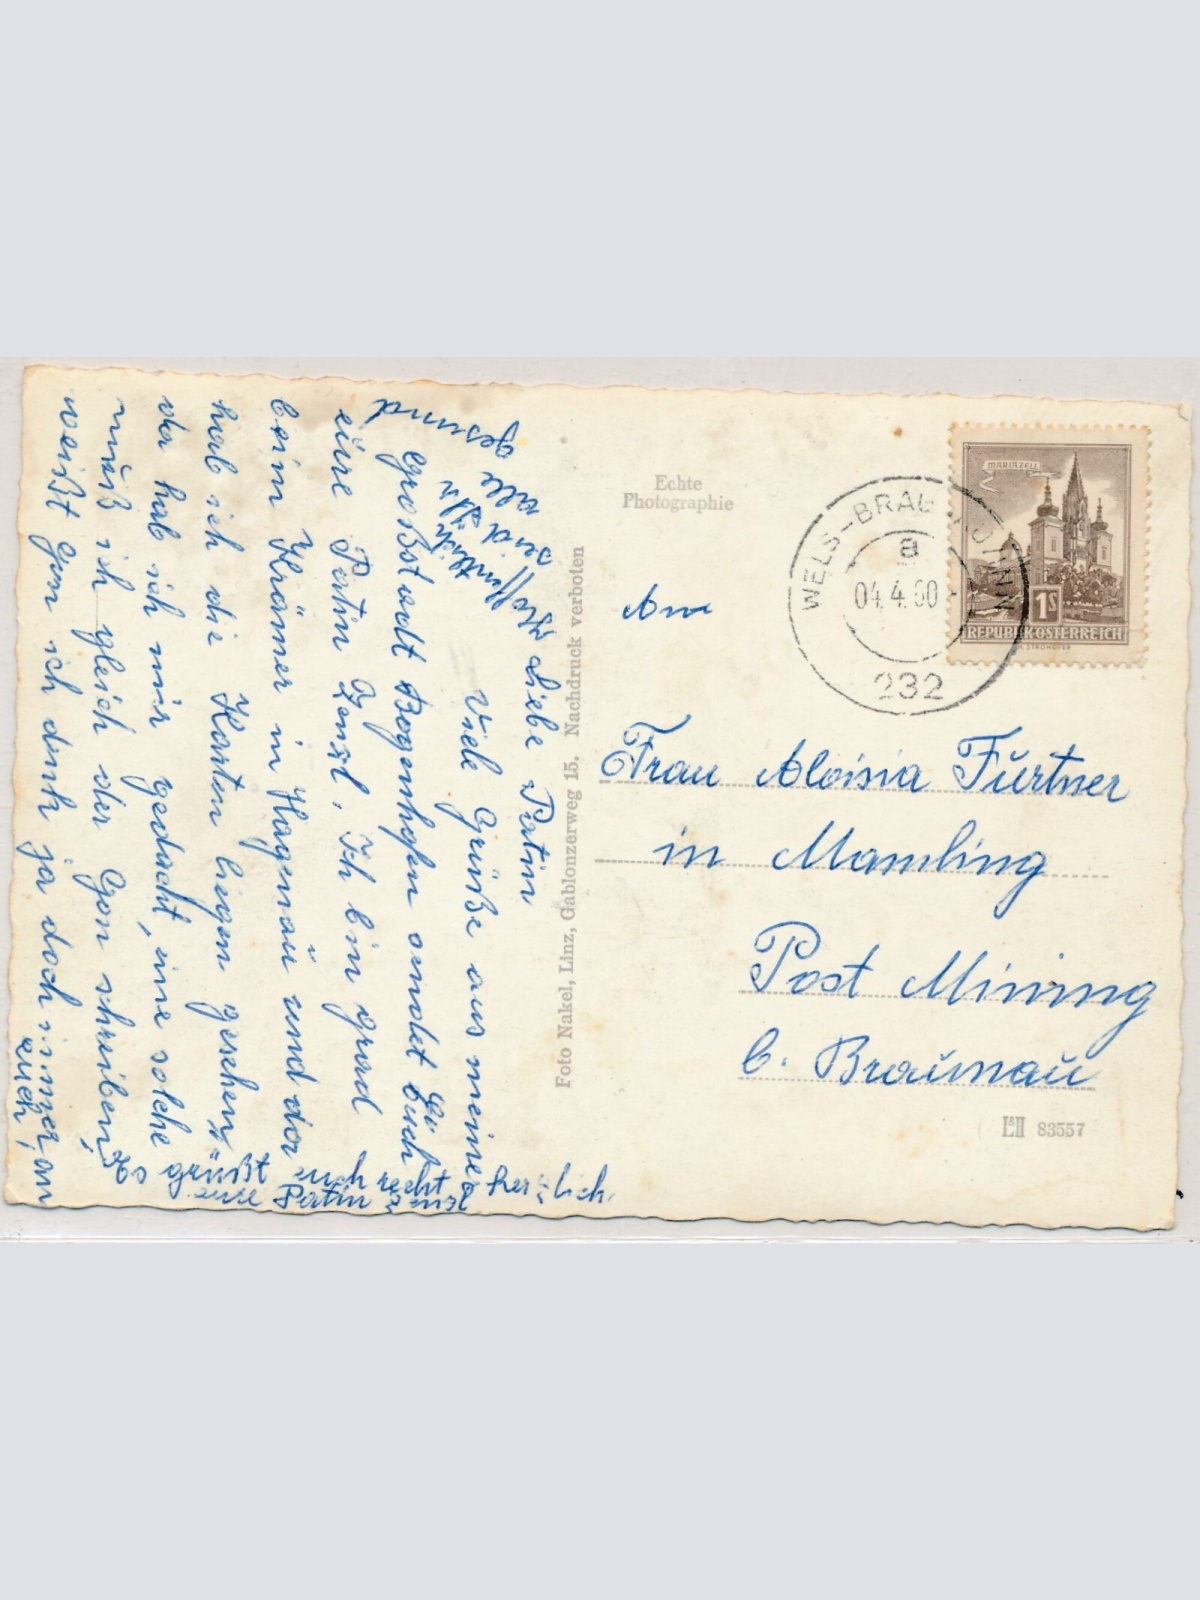 Liebe Patin
Viele Grüße aus meiner
Großstadt Bogenhofen sendet Euch
eüre Patin Zenzl. Ich bin grad
beim Krämer in Hagenaü und da
hab ich die Karten liegen gesehen,
da hab ich mir gedacht, eine solche
müß ich gleich der Gon schreiben,
weißt Gon ich denk ja doch immer an
eüch,
Es grüßt euch recht herzlich
eure Patin Zenzl
Hoffentlich
seid Ihr
alle
gesund
Foto Nakel, Linz, Gablonzerweg 15. Nachdruck verboten
Echte
Photographie
WELS-BRAUNAU/INN
a
04.4.60
232
MARIAZELL
1S
REPUBLIK ÖSTERREICH
An
Frau Aloisia Fürtner
in Mamling
Post Mining
b. Braünaü
83557